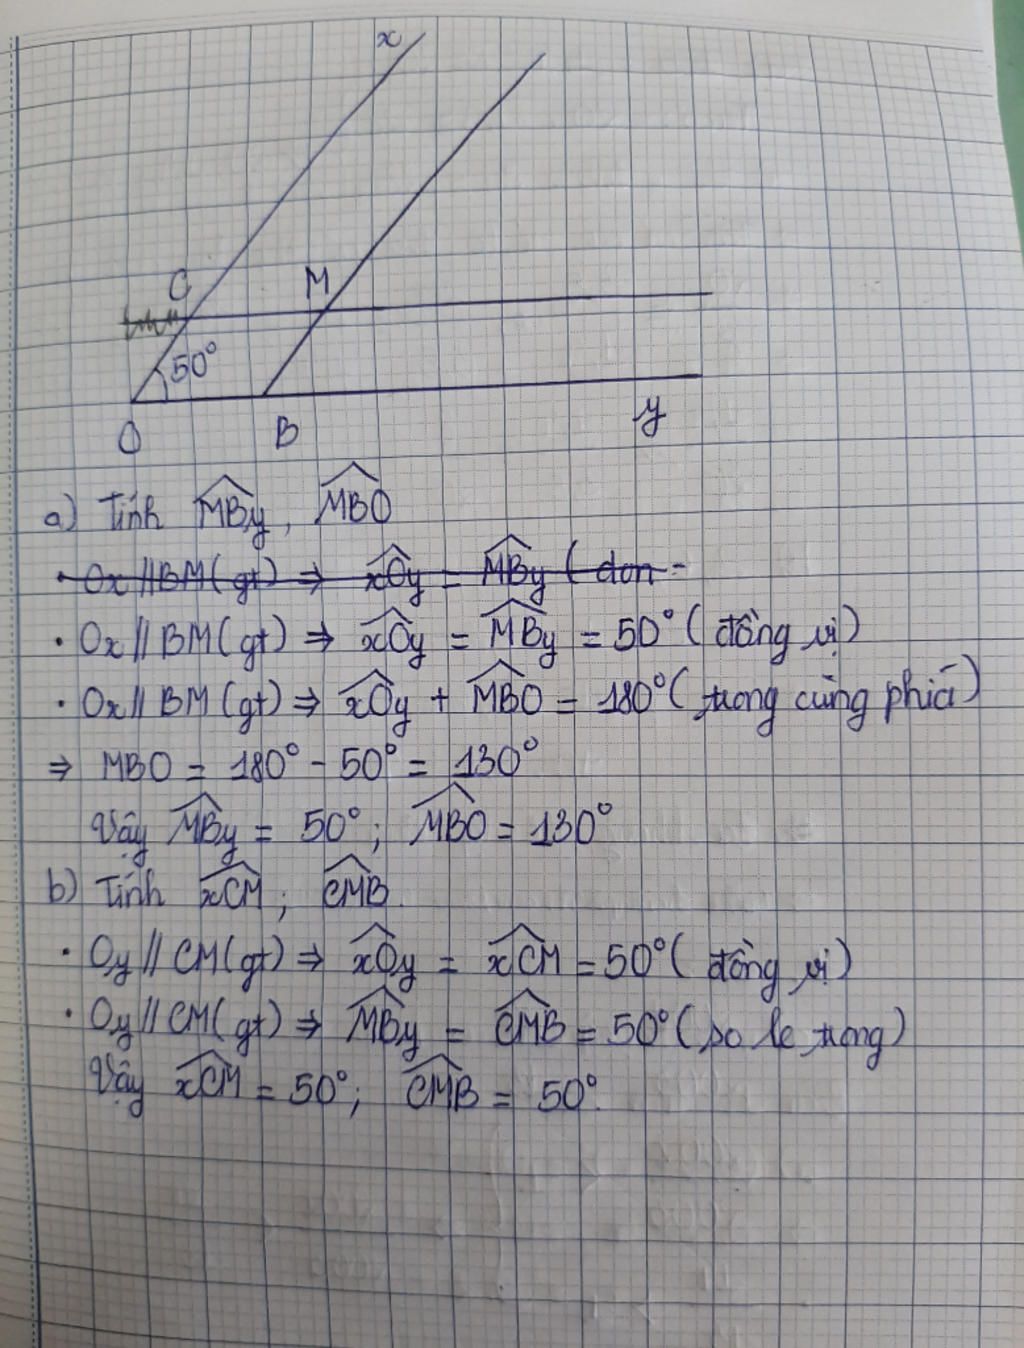 x
C M
50°
O B y
a) Tính MBy, MBO
· Ox // BM (gt) ⇒ xOy = MBy ( don -
· Ox // BM (gt) ⇒ xOy = MBy = 50° ( đồng vị )
· Ox // BM (gt) ⇒ xOy + MBO = 180° ( trong cùng phía )
⇒ MBO = 180° - 50° = 130°
Vậy MBy = 50° ; MBO = 130°
b) Tính xCM ; CMB.
· Oy // CM (gt) ⇒ xOy = xCM = 50° ( đồng vị )
· Oy // CM (gt) ⇒ MBy = CMB = 50° ( so le trong )
Vậy xCM = 50° ; CMB = 50°.